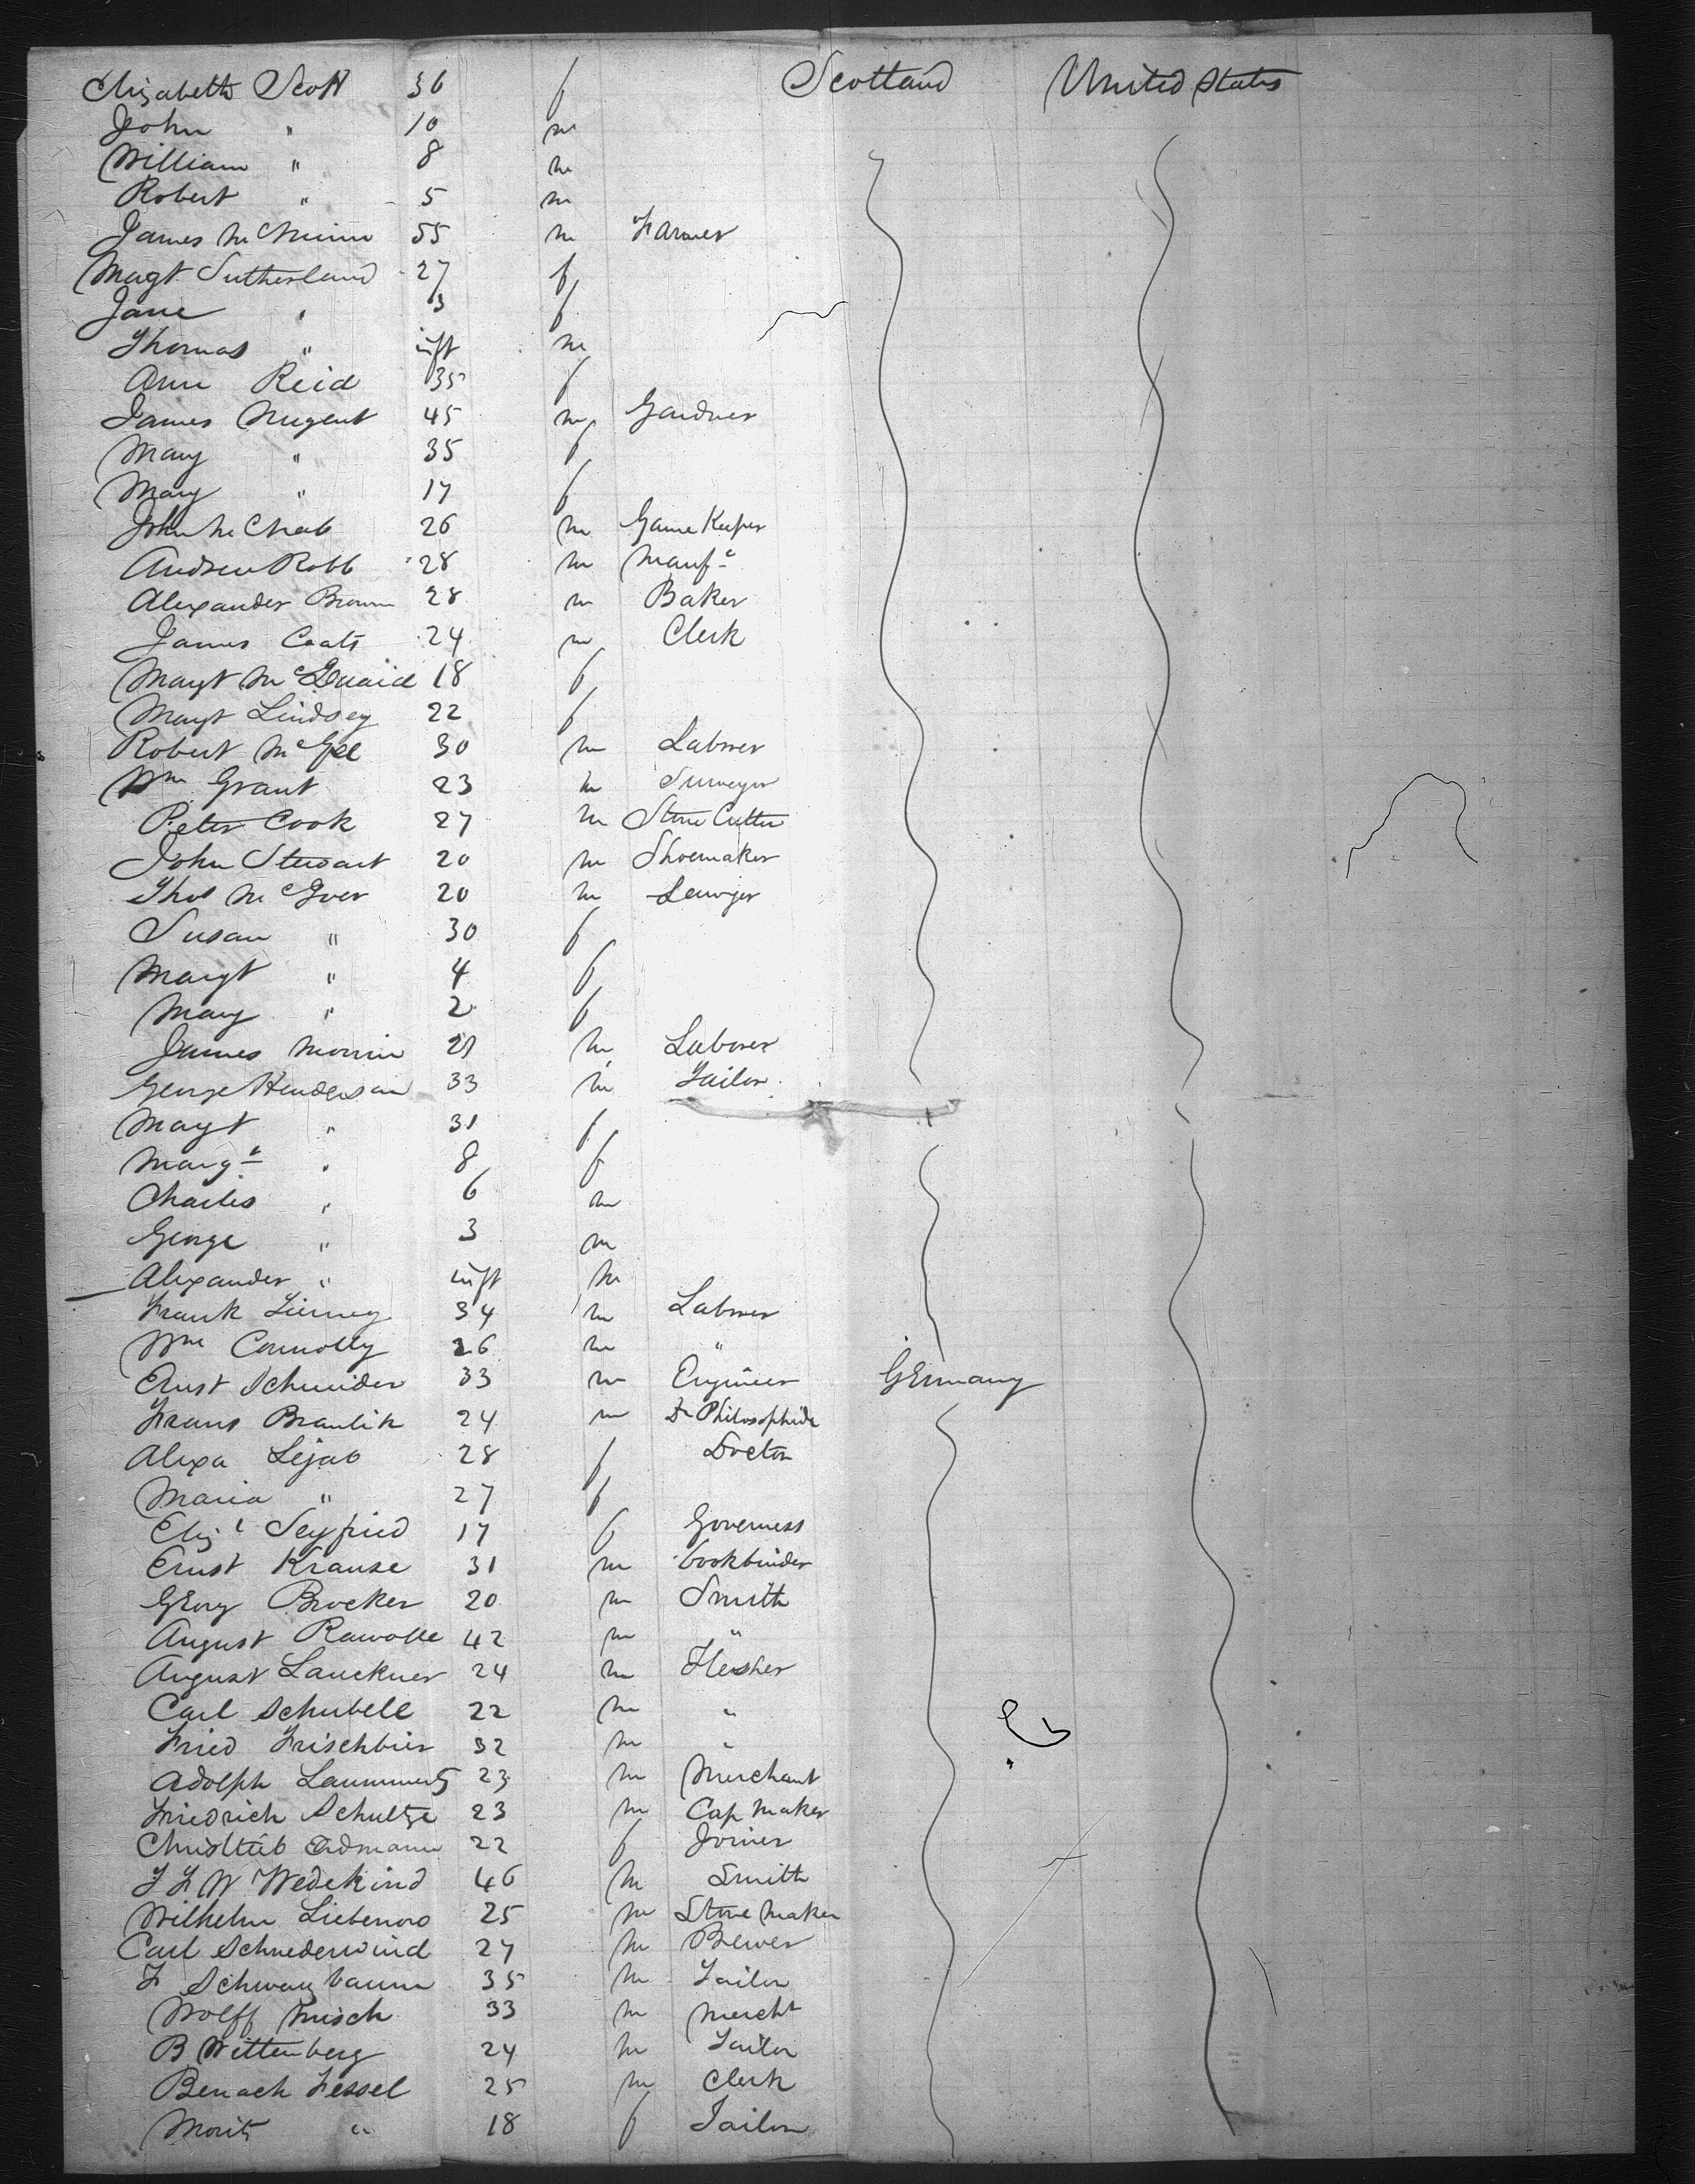 Elizabeth Scott 36 f Scotland United States
John " 10 m
William " 8 m
Robert " 5 m
James 55 m Farmer
Magt Sutherland 27 f
Jane " 3 f
Thomas " inft m
Ann Reid 35 f
James Nugent 45 m Gardner
Mary " 35 f
Mary " 17 f
John McNab 26 m Game Keeper
Andrew Robb 28 m Manufr
Alexander Brown 28 m Baker
James Coats 24 m Clerk
Magt McQuaid 18 f
Magt Lindsey 22 f
Robert McGee 30 m Laborer
Wm Grant 23 m Surveyor
Peter Cook 27 m Stone Cutter
John Stewart 20 m Shoemaker
Thos 20 m
Susan " 30 f
Margt " 4 f
Mary " 2 f
James 21 m Laborer
George Henderson 33 m Tailor
Magt " 31 f
Margt " 8 f
Charles " 6 m
George " 3 m
Alexander " inft m
Frank Tierney 34 m Laborer
Wm Connolly 26 m "
Ernst Schneider 33 m Engineer Germany
Franz Braulik 24 m Dr Philosophide
Alexa Lejab 28 f Doctor
Maria " 27 f
Eliz Seyfried 17 f Governess
Ernst Krause 31 m bookbinder
Georg Brocker 20 m Smith
August Rawolle 42 m "
August Lauckner 24 m Flesher
Carl Schubell 22 m "
Fried Frischbier 32 m "
Adolph 23 m Merchant
Friedrich Schultze 23 m Cap Maker
Christlieb Erdmann 22 f Joiner
F F W Wedekind 46 m Smith
Wilhelm Liebenow 25 m Stone Maker
Carl Schnederwind 27 m Brewer
F Schwarzbaum 35 m Tailor
Wolff 33 m Mercht
B Wittenberg 24 m Tailor
Benach Fessel 25 m Clerk
Moritz " 18 f Tailor